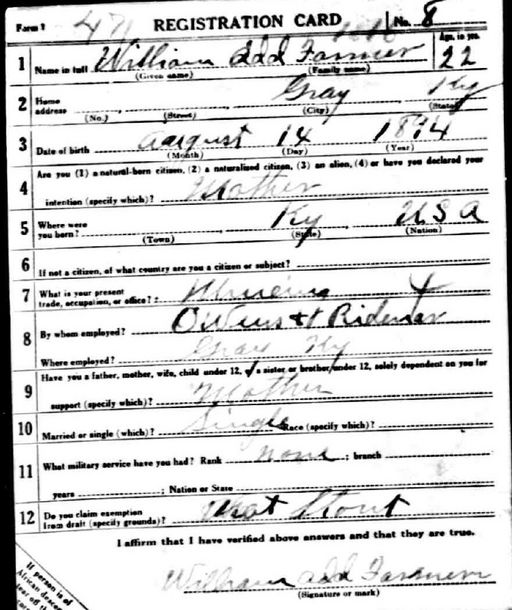 Form 1 REGISTRATION CARD No. 8
1 Name in full William Add Farmer Age, in yrs. 22
(Given name) (Family name)
2 Home address Gray Ky
(No.) (Street) (City) (State)
3 Date of birth August 14 1894
(Month) (Day) (Year)
4 Are you (1) a natural-born citizen, (2) a naturalized citizen, (3) an alien, (4) or have you declared your
intention (specify which)? Mother
5 Where were you born? Ky U.S.A
(Town) (State) (Nation)
6 If not a citizen, of what country are you a citizen or subject?
7 What is your present trade, occupation, or office? Mineing
8 By whom employed? Owens &
Where employed? Gray Ky
9 Have you a father, mother, wife, child under 12, or a sister or brother under 12, solely dependent on you for
support (specify which)? Mother
10 Married or single (which)? Single Race (specify which)?
11 What military service have you had? Rank none ; branch
years ; Nation or State
12 Do you claim exemption from draft (specify grounds)? Not Stout
I affirm that I have verified above answers and that they are true.
William Add Farmer
(Signature or mark)
If person is of
African